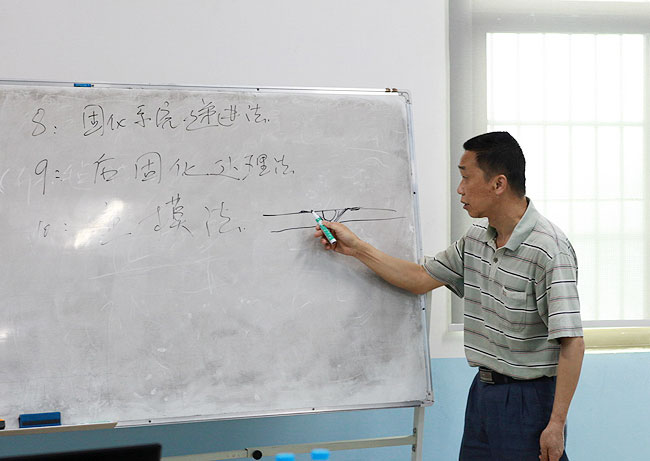 8：固化系统递进法.
9：后固化处理法.
10：  模法.